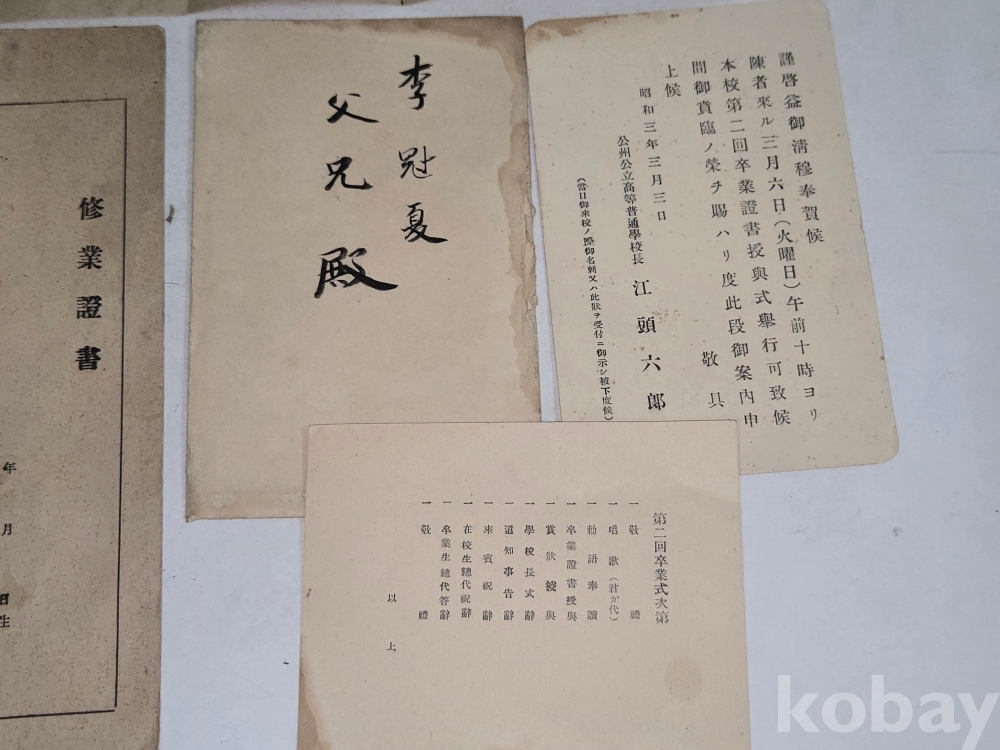 修業證書
年
月
日
生
李冠夏
父兄殿
謹啓益御淸穆奉賀候
陳者來ル三月六日(火曜日)午前十時ヨリ
本校第二回卒業證書授與式擧行可致候
間御賁臨ノ榮ヲ賜ハリ度此段御案內申
上候
敬具
昭和三年三月三日
公州公立高等普通學校長 江頭六郞
(當日御來校ノ際御名刺又ハ此狀ヲ受付ニ御示シ被下度候)
第二回卒業式次第
一 敬禮
一 唱歌(君ガ代)
一 勅語奉讀
一 卒業證書授與
一 賞狀授與
一 學校長式辭
一 道知事告辭
一 來賓祝辭
一 在校生總代祝辭
一 卒業生總代答辭
一 敬禮
以上
kobay